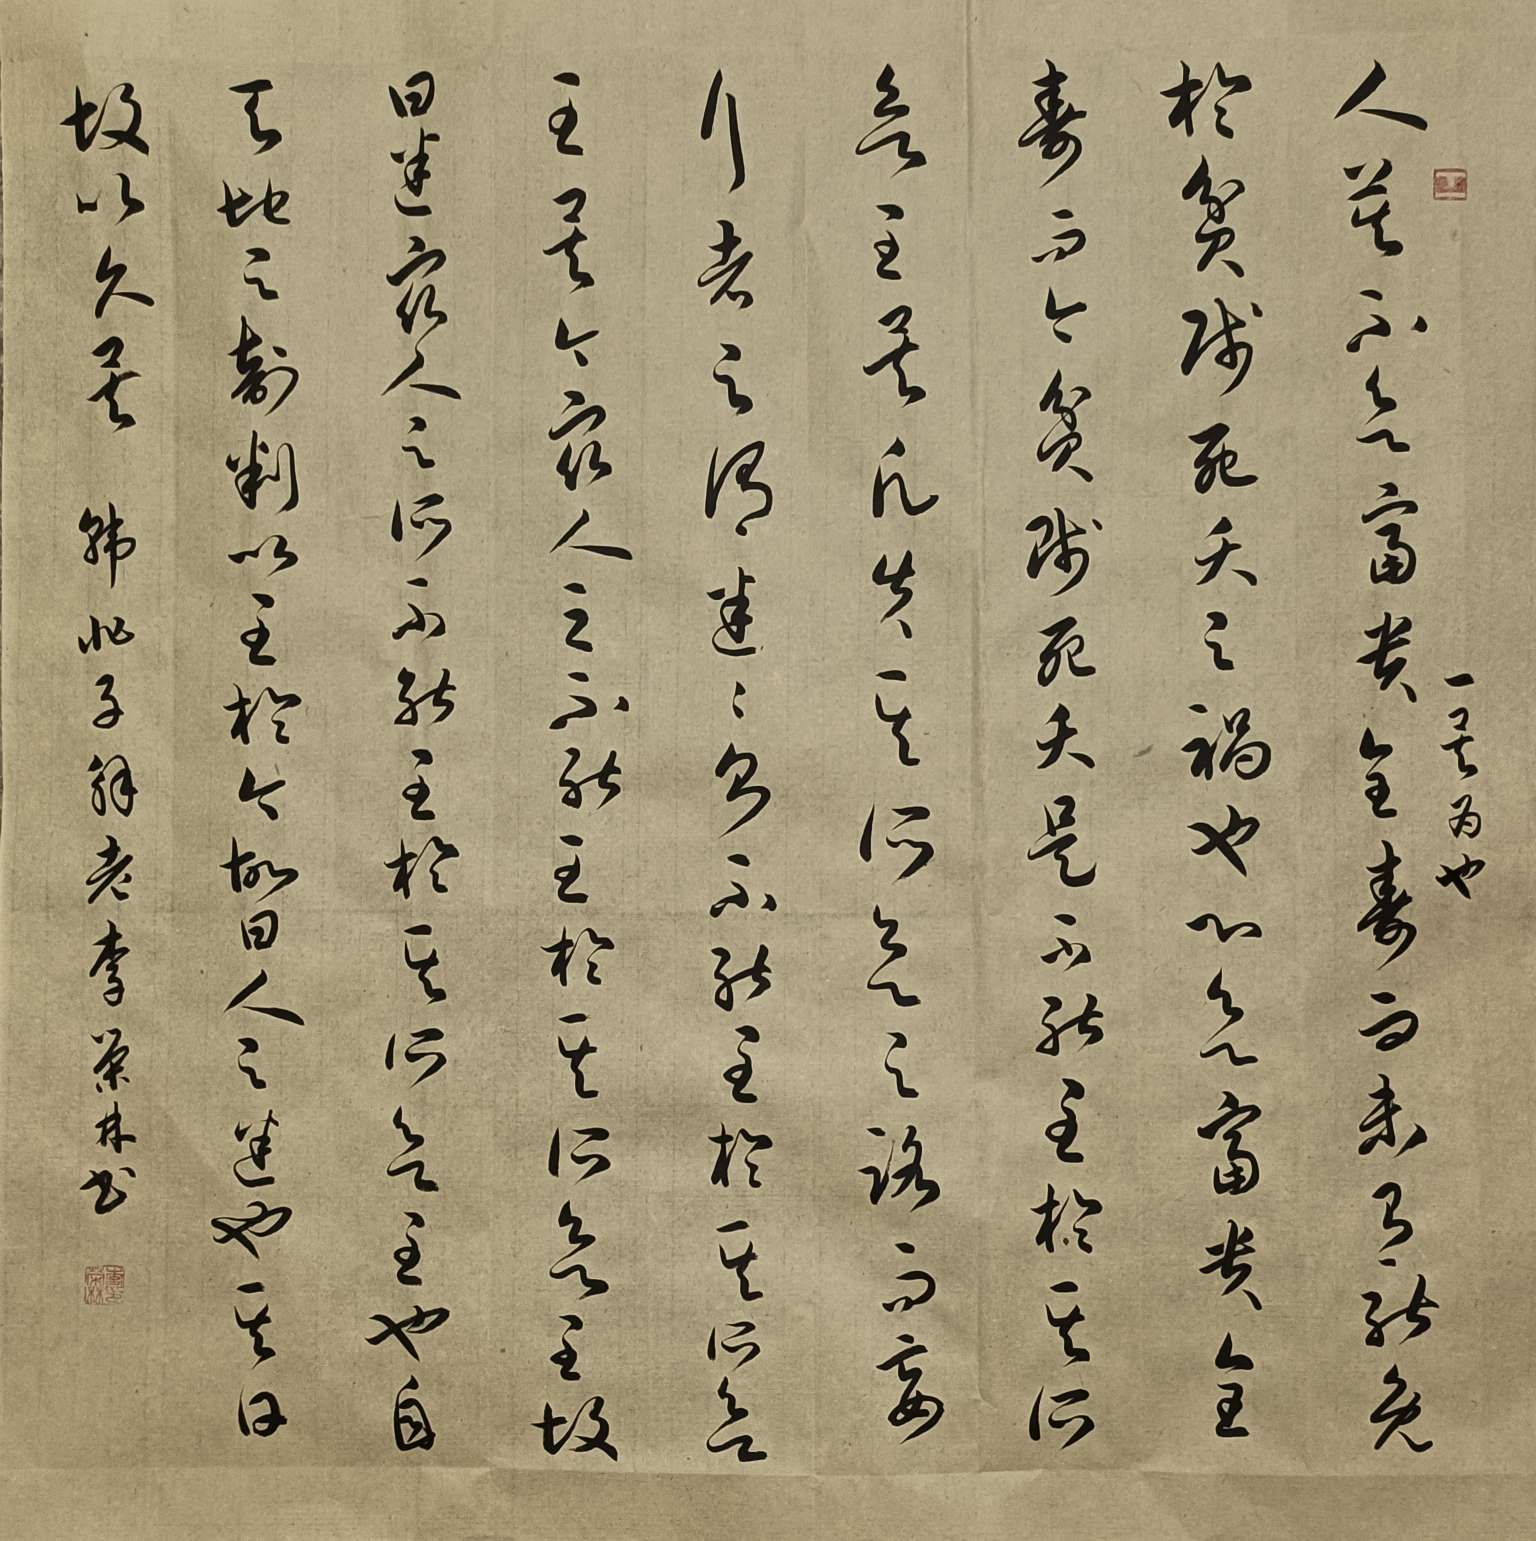 人莫不欲富貴全壽而未有能免
於貧賤死夭之禍也心欲富貴全
壽而今貧賤死夭是不能至於其所
欲至矣凡失其所欲之路而妄
行者之謂迷々則不能至於其所欲
至矣今眾人之不能至於其所欲至故
曰迷眾人之所不能至於其所欲至也自
天地之剖判以至於今故曰人之迷也其日
故以久矣 韓非子解老李榮林書
一矣为也